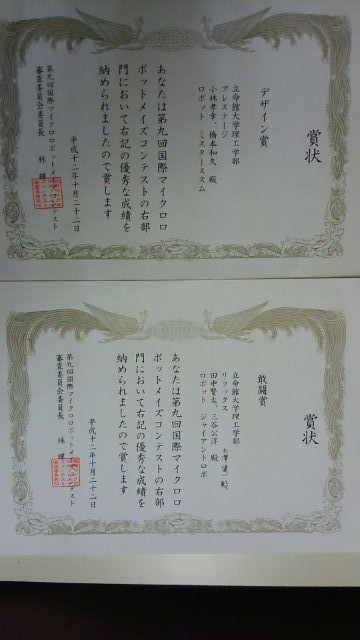 賞状
デザイン賞
立命館大学理工学部
プレステージ
小林孝幸、橋本和久 殿
ロボット ミスタースズム
あなたは第九回国際マイクロロ
ボットメイズコンテストの右部
門において右記の優秀な成績を
納められましたので賞します
平成十二年十月二十二日
第九回国際マイクロロボットメイズコンテスト
審査委員会委員長 林 輝
賞状
敢闘賞
立命館大学理工学部
リラックス
田中賢太、三谷公洋 殿
ロボット ジャイアントロボ
あなたは第九回国際マイクロロ
ボットメイズコンテストの右部
門において右記の優秀な成績を
納められましたので賞します
平成十二年十月二十二日
第九回国際マイクロロボットメイズコンテスト
審査委員会委員長 林 輝